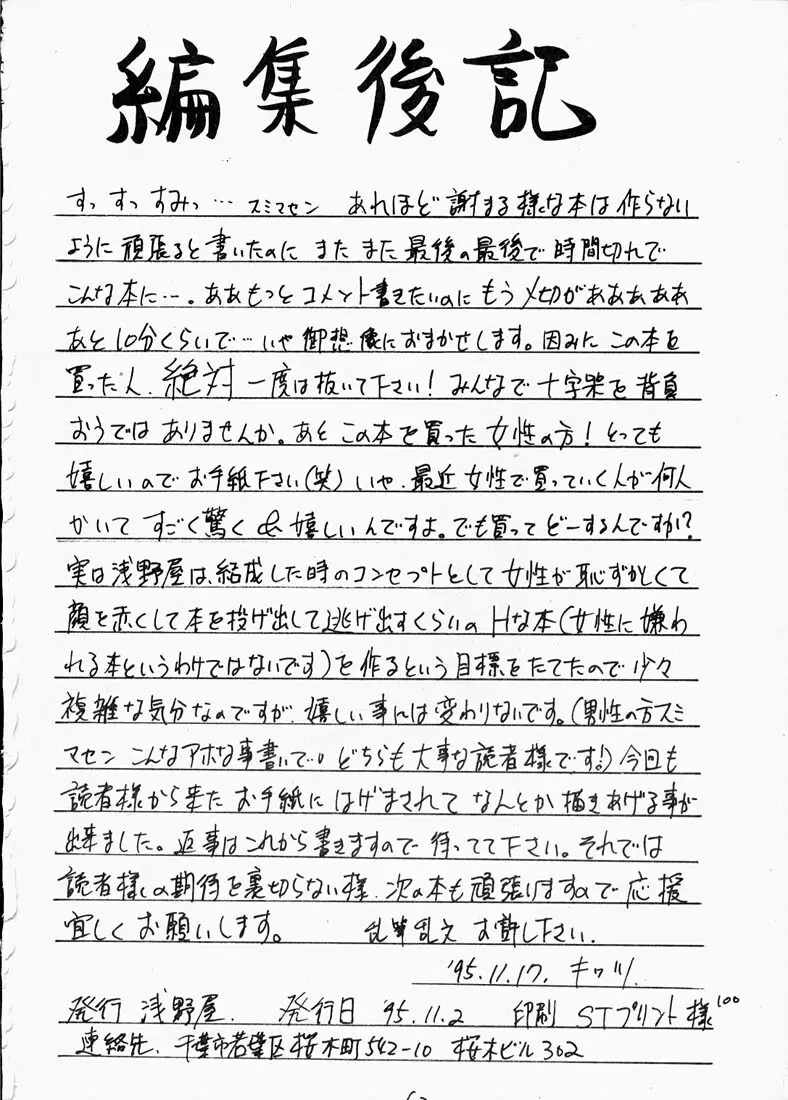 編集後記
すっすっすみっ… スミマセン あれほど謝まる様な本は作らない
ように頑張ると書いたのに また また 最後の最後で時間切れで
こんな本に…。ああもっとコメント書きたいのにもう〆切がああああああ
あと10分くらいで…いや御想像におまかせします。因みに この本を
買った人、絶対一度は抜いて下さい!みんなで十字架を背負
おうではありませんか。あと この本を買った女性の方!とっても
嬉しいのでお手紙下さい(笑)いや、最近女性で買っていく人が何人
かいて すごく驚く&嬉しいんですよ。でも買ってどーするんですか?
実は浅野屋は、結成した時のコンセプトとして女性が恥ずかしくて
顔を赤くして本を投げ出して逃げ出すくらいのHな本(女性に嫌わ
れる本というわけではないです)を作るという目標をたてたので少々
複雑な気分なのですが、嬉しい事には変わりないです。(男性の方スミ
マセン こんなアホな事書いて。どちらも大事な読者様です!)今回も
読者様から来た お手紙に はげまされて なんとか描きあげる事が
出来ました。返事はこれから書きますので 待ってて下さい。それでは
読者様の期待を裏切らない様、次の本も頑張りますので 応援
宜しくお願いします。 乱筆乱文 お許し下さい.
'95.11.17. キツツ.
発行 浅野屋. 発行日 '95.11.2 印刷 STプリント様100
連絡先、千葉市若葉区桜木町542-10 桜木ビル302